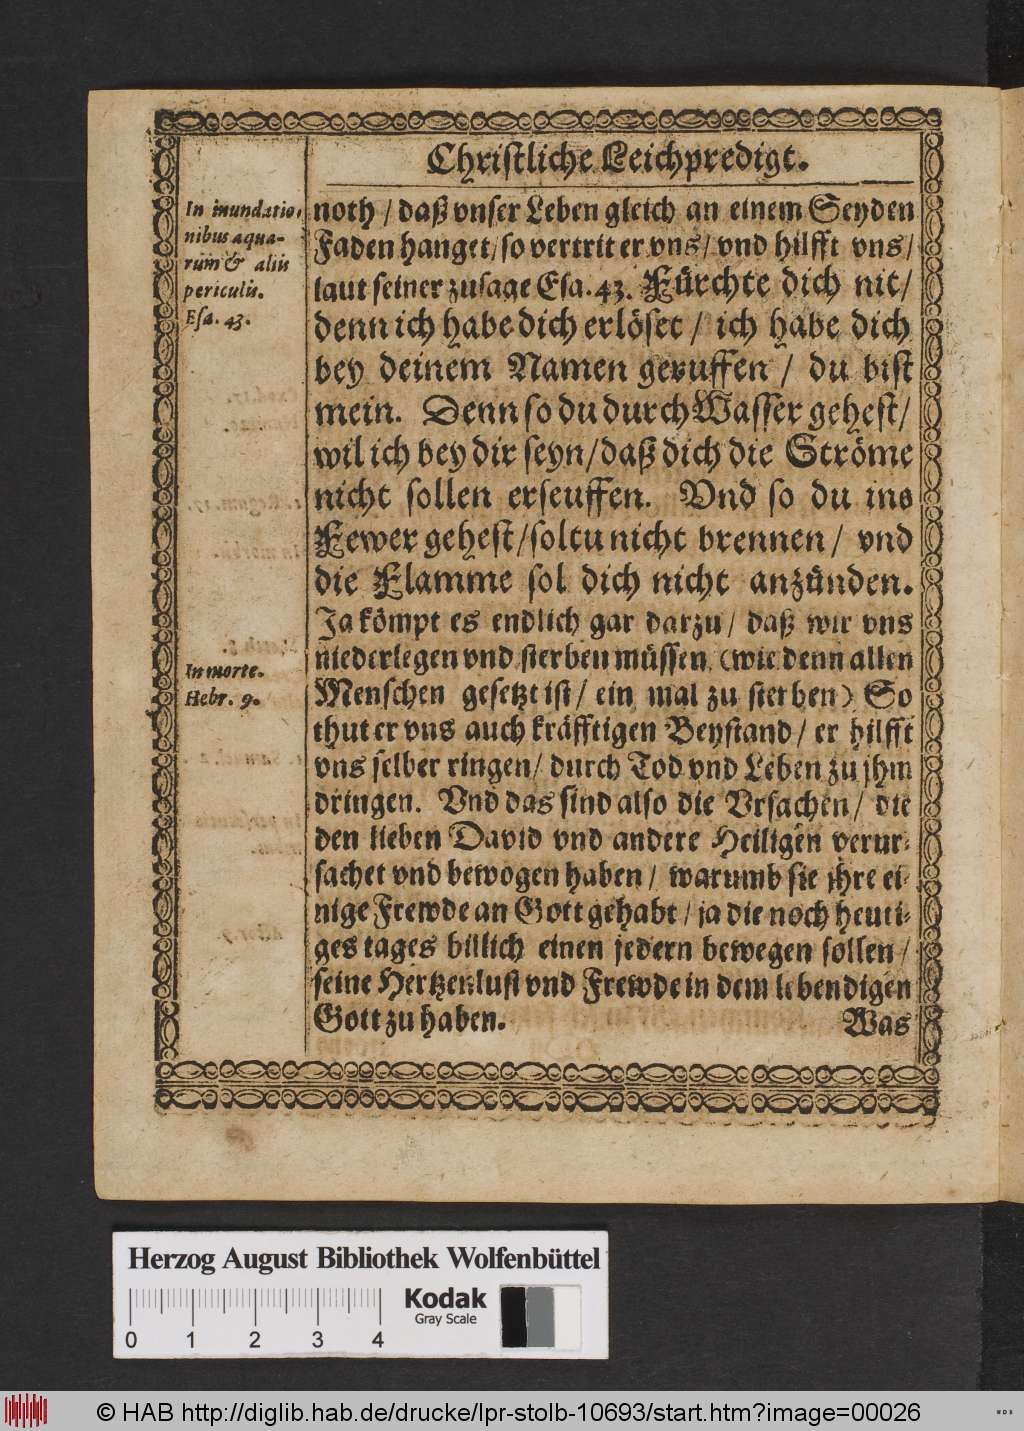 Christliche Leichpredigt.
In inundatio-
nibus aqua-
rum̃ & aliis
periculis.
Esa. 43.
noth / daß vnser Leben gleich an einem Seyden
Faden hanget / so vertrit er vns / vnd hilfft vns /
laut seiner zusage Esa. 43. Fürchte dich nit /
denn ich habe dich erlöset / ich habe dich
bey deinem Namen geruffen / du bist
mein. Denn so du durch Wasser gehest /
wil ich bey dir seyn / daß dich die Ströme
nicht sollen erseuffen. Vnd so du ins
Fewer gehest / soltu nicht brennen / vnd
die Flamme sol dich nicht anzünden.
Ja kömpt es endlich gar darzu / daß wir vns
niederlegen vnd sterben müssen (wie denn allen
Menschen gesetzt ist / ein mal zu sterben) So
thut er vns auch kräfftigen Beystand / er hilfft
vns selber ringen / durch Tod vnd Leben zu jhm
dringen. Vnd das sind also die Vrsachen / die
den lieben David vnd andere Heiligen verur-
sachet vnd bewogen haben / warumb sie jhre ei-
nige Frewde an Gott gehabt / ja die noch heuti-
ges tages billich einen jedern bewegen sollen /
seine Hertzenlust vnd Frewde in dem lebendigen
Gott zu haben.
Was
In morte.
Hebr. 9.
Herzog August Bibliothek Wolfenbüttel
Kodak
Gray Scale
0 1 2 3 4
© HAB http://diglib.hab.de/drucke/lpr-stolb-10693/start.htm?image=00026